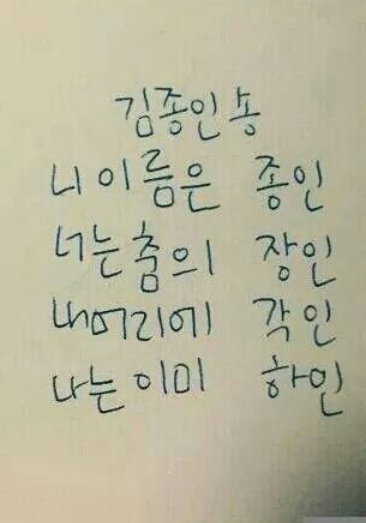 김종인송
니이름은 종인
너는춤의 장인
내머리에 각인
나는이미 하인